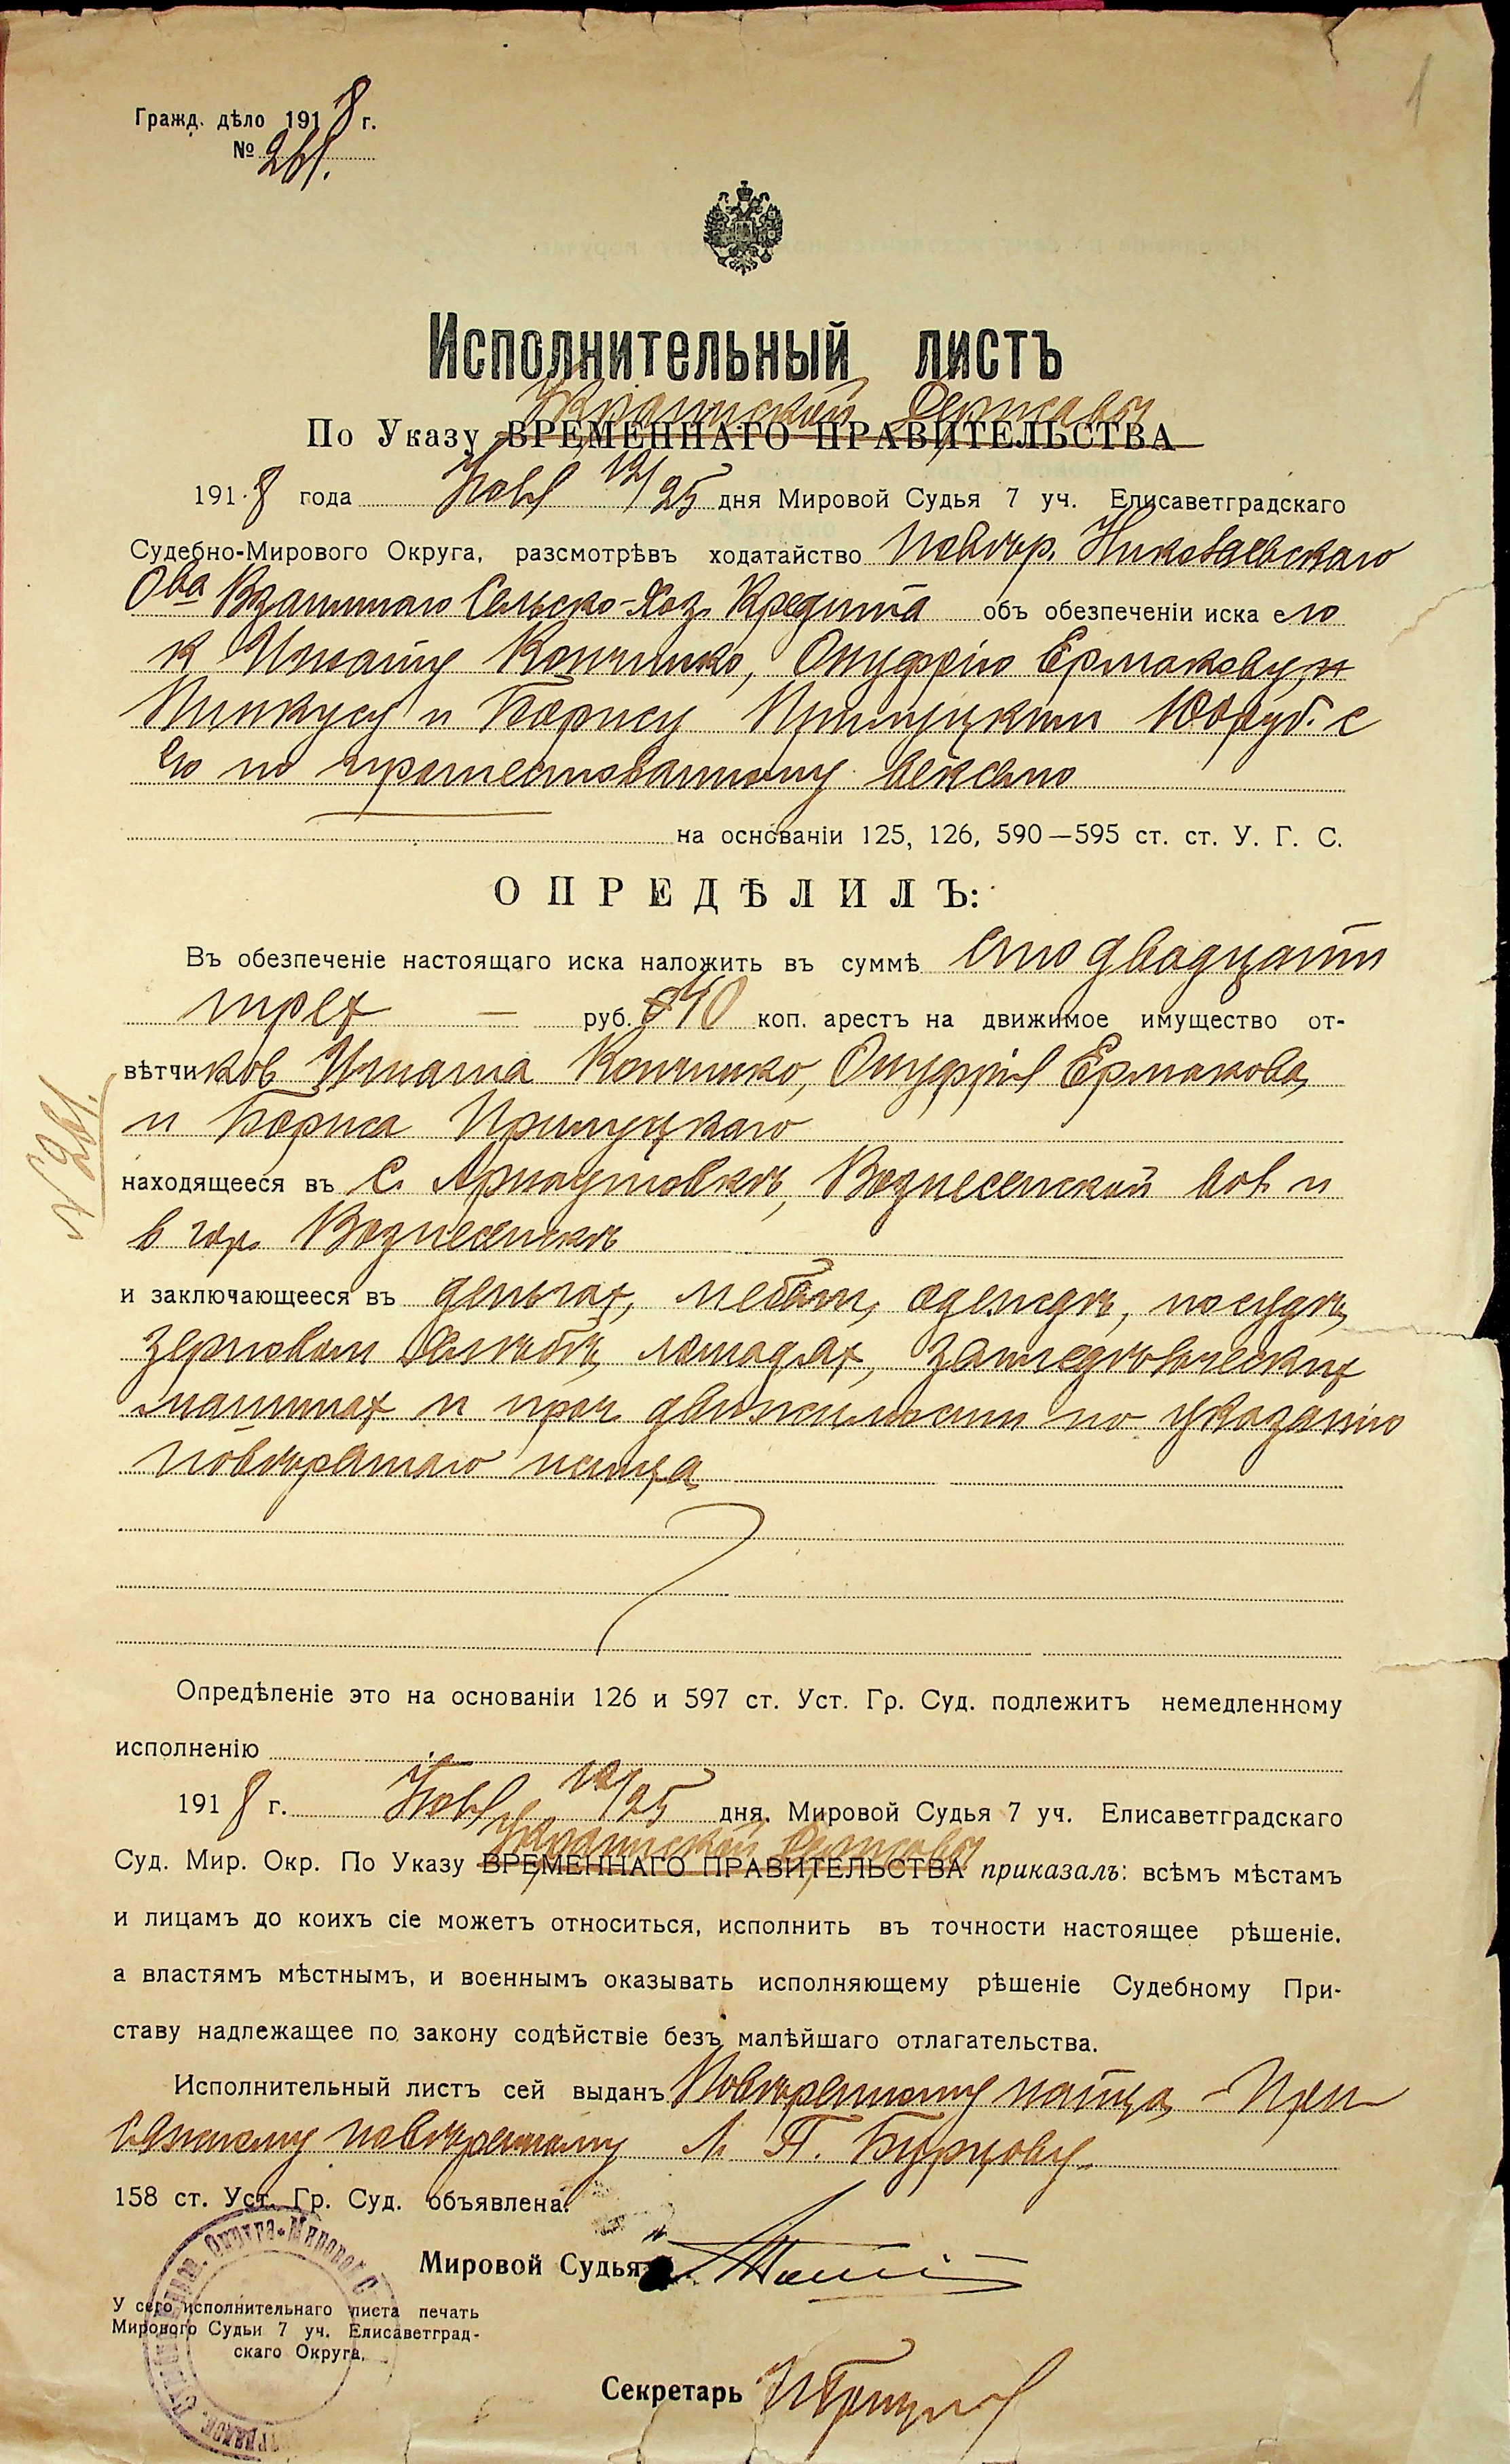 1
Гражд. дѣло 1918 г.
№ 261.
Исполнительный листъ
Украинской Державы
По Указу ВРЕМЕННАГО ПРАВИТЕЛЬСТВА
1918 года Нояб 12/25 дня Мировой Судья 7 уч. Елисаветградскаго
Судебно-Мирового Округа, разсмотрѣвъ ходатайство повѣр. Николаевскаго
О-ва Взаимнаго Сельско-Хоз. Кредита объ обезпеченіи иска его
к Игнату Копчинко, Онуфрію Ермакову, и
Пинкусу и Борису Прилуцким 100 руб. с
%о по протестованному векселю
на основаніи 125, 126, 590—595 ст. ст. У. Г. С.
ОПРЕДѢЛИЛЪ:
Въ обезпеченіе настоящаго иска наложить въ суммѣ сто двадцати
трех — руб. 40 коп. арестъ на движимое имущество от-
вѣтчиков Игната Копчинко, Онуфрія Ермакова,
и Бориса Прилуцкаго
находящееся въ с. Арнаутовкѣ, Вознесенской вол и
в гор. Вознесенскѣ
и заключающееся въ деньгах, мебели, одеждѣ, посудѣ,
зерновом хлѣбѣ, лошадях, земледѣльческих
машинах и проч. движимости по указанію
повѣреннаго истца
№ 261.
Опредѣленіе это на основаніи 126 и 597 ст. Уст. Гр. Суд. подлежитъ немедленному
исполненію
1918 г. Нояб 12/25 дня. Мировой Судья 7 уч. Елисаветградскаго
Украинской Державы
Суд. Мир. Окр. По Указу ВРЕМЕННАГО ПРАВИТЕЛЬСТВА приказалъ: всѣмъ мѣстамъ
и лицамъ до коихъ сіе можетъ относиться, исполнить въ точности настоящее рѣшеніе.
а властямъ мѣстнымъ, и военнымъ оказывать исполняющему рѣшеніе Судебному При-
ставу надлежащее по закону содѣйствіе безъ малѣйшаго отлагательства.
Исполнительный листъ сей выданъ Повѣренному истца — При-
сяжному повѣренному Л. П. Бурцову
158 ст. Уст. Гр. Суд. объявлена.
Мировой Судья
У сего исполнительнаго листа печать
Мирового Судьи 7 уч. Елисаветград-
скаго Округа.
Секретарь